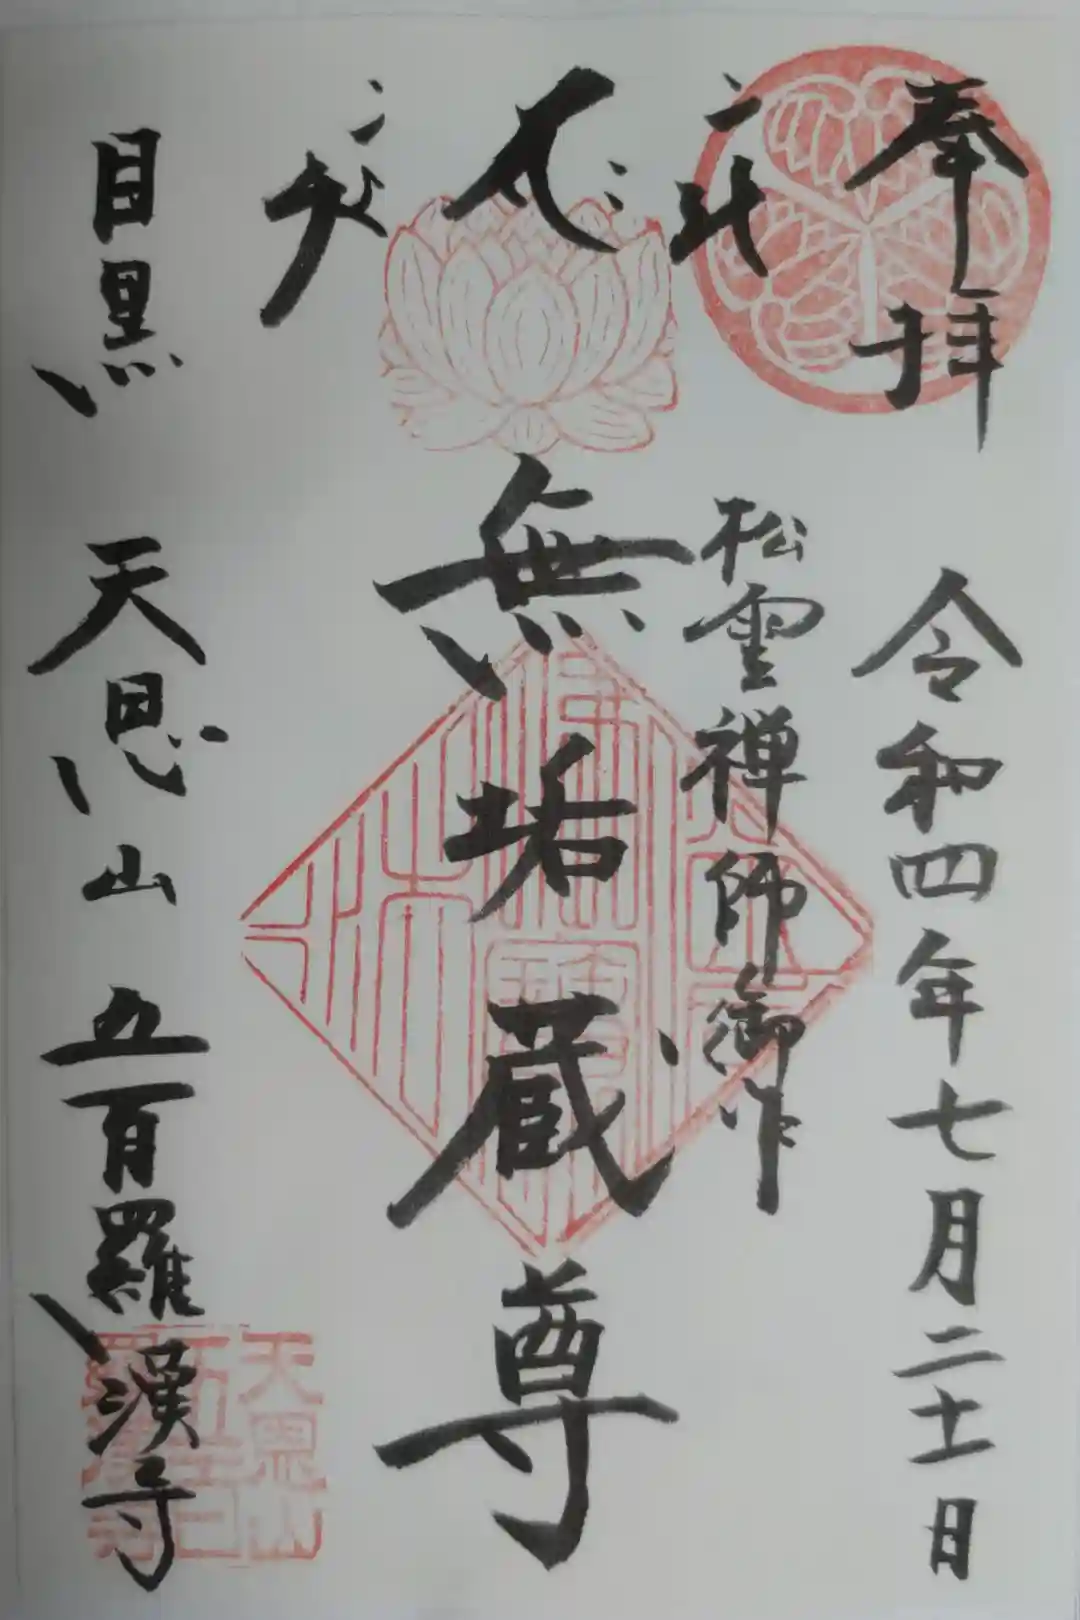 奉拝 令和四年七月二十一日
松雲禅師御作
無垢蔵尊
目黒 天恩山 五百羅漢寺
天恩山
五百
羅漢寺